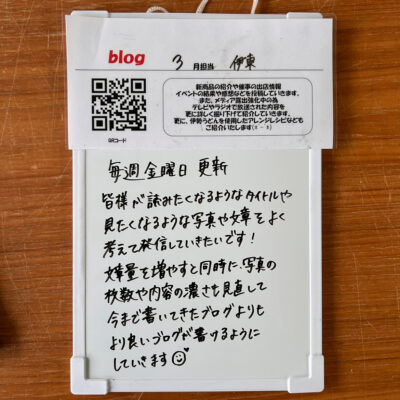 blog
3月担当 伊東
新商品の紹介や催事の出店情報
イベントの結果や感想などを投稿していきます。
また、メディア露出強化中の為
テレビやラジオで放送された内容を
更に詳しく掘り下げて紹介していきます。
更に、伊勢うどんを使用したアレンジレシピなども
ご紹介いたします(^-^)
QRコード
毎週金曜日更新
皆様が読みたくなるようなタイトルや
見たくなるような写真や文章をよく
考えて発信していきたいです！
文章量を増やすと同時に、写真の
枚数や内容の濃さも見直して
今まで書いてきたブログよりも
より良いブログが書けるように
していきます